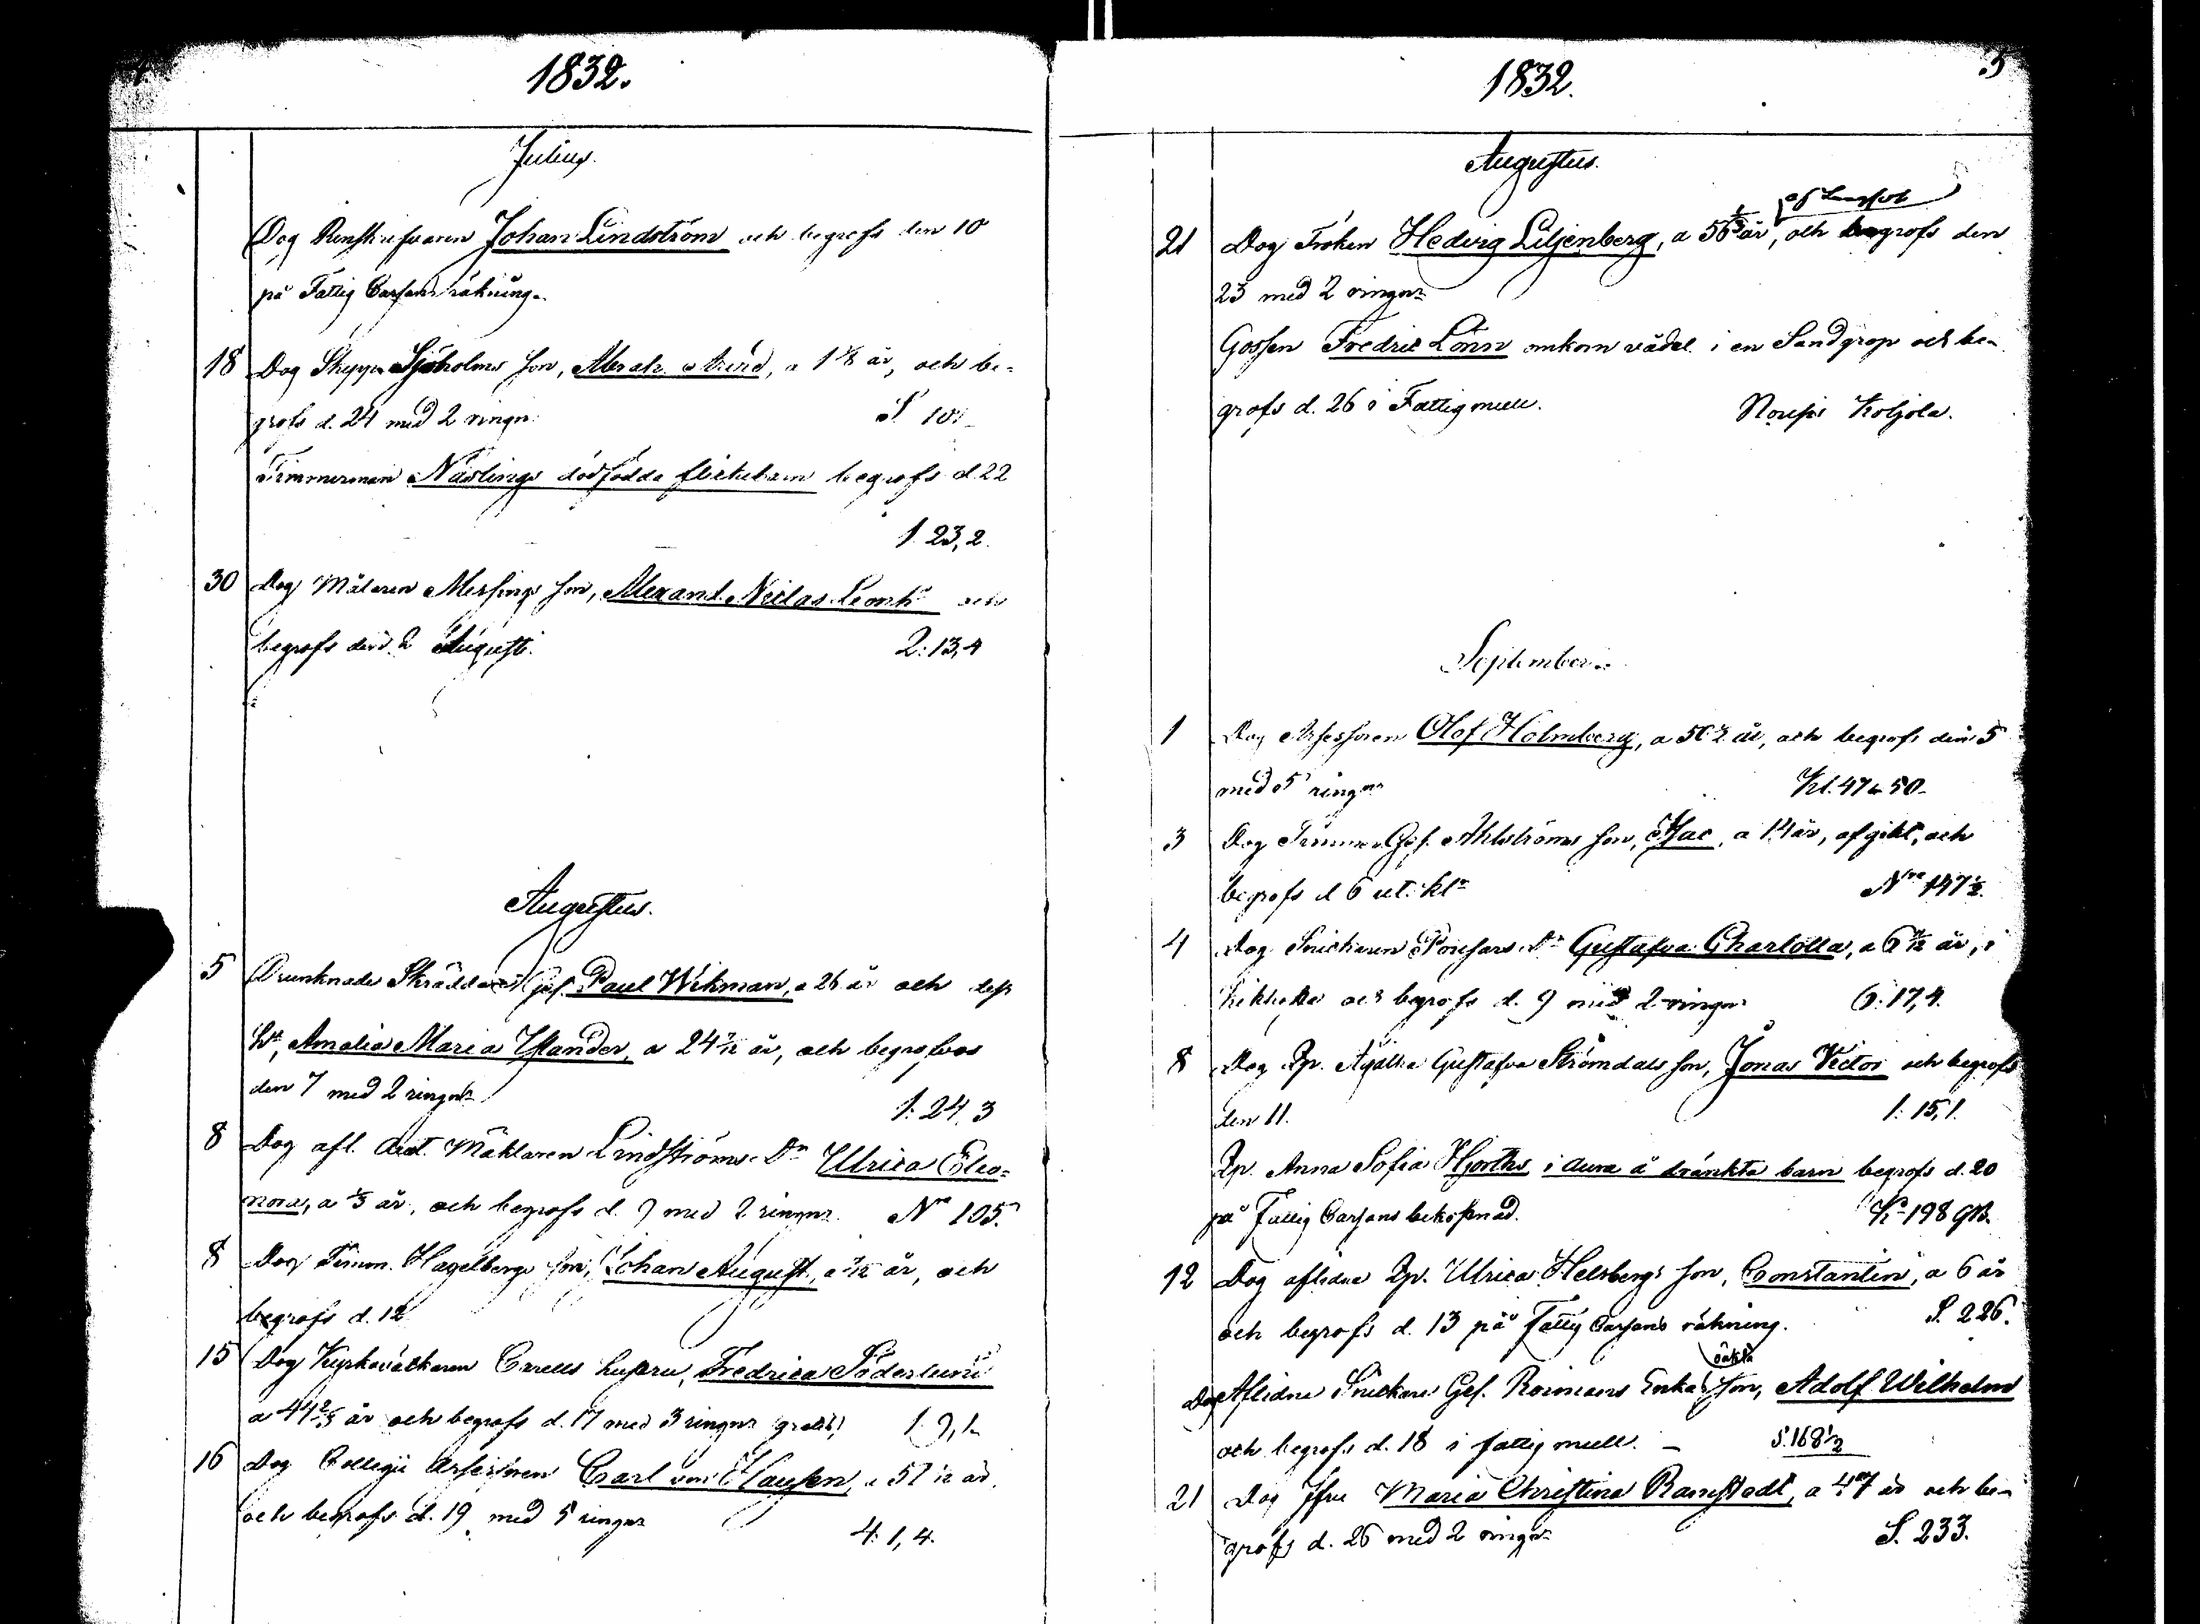 1832.
Julius.
Dog Renskrifvaren Johan Lindström och begrofs den 10
på Fattig Cassans räkning.
18 Dog Skepp. Sjöholms son, Alexdr. Arvid, a 1 1/2 år, och be-
grofs d. 24 med 2 ringnr. S. 101
Timmerman Näslings dödfödda flickebarn begrofs d. 22
1. 23, 2.
30 Dog Målaren Messings son, Alexand. Niclas Leonh. och
begrofs den 2 Augusti. 2: 13, 4
Augustus.
5 Drunknade Skräddare Ges. Paul Wikman, a 26 år och dess
Ht, Amalia Maria Ylander, a 24 7/12 år, och begrofvos
den 7 med 2 ringnr 1: 24, 3
8 Dog afl. Mäklaren Lindströms Dr Ulrica Eleo-
nora, a 1/3 år, och begrofs d. 9 med 2 ringnr. No 105.
8 Dog Timm. Hagelbergs son, Johan August, a 7/12 år, och
begrofs d. 12
15 Dog Kyrkoväktaren Carells hustru, Fredrica Söderlund
a 41 2/3 år och begrofs d. 17 med 3 ringnr (gratis) 1. 9, 1.
16 Dog Collegii Assessoren Carl von Hausen, a 57 1/2 år,
och begrofs d. 19 med 5 ringnr 4: 1, 4.
1832. 5
Augustus.
21 Dog Fröken Hedvig Liljenberg, a 56 1/3 år, af Lungsot och begrofs den
23 med 2 ringnr
Gossen Fredric Lönn omkom vådel. i en Sandgrop och be-
grofs d. 26 i Fattigmull. Koljola.
September.
1 Dog Assessoren Olof Holmberg, a 50 1/2 år, och begrofs den 5
med 5 ringnr Kl. 47 50.
3 Dog Timmer Ges. Ahlströms son, Isac, a 14 år, af gikt, och
begrofs d 6 ut. kl. No 147 1/2.
4 Dog Snickaren Dr Gustafva Charlotta, a 6 år, i
Kikhosta och begrofs d. 9 med 2 ringnr 6: 17, 4.
8 Dog Qp. Agatha Gustafva Strömdals son, Jonas Victor och begrofs
den 11. 1: 15, 1.
Qp. Anna Sofia Hjorths i Aura å dränkta barn begrofs d. 20
på Fattig Cassans bekostnad. 198
12 Dog aflidne Qp. Ulrica Helsbergs son, Constantin, a 6 år
och begrofs d. 13 på Fattig Cassans räkning. S. 226.
Dog Aflidne Snickare Ges. Roimans Enkas oäkta son, Adolf Wilhelm
och begrofs d. 18 i fattigmull. – S. 168 1/2
21 Dog Jfru Maria Christina Ramstedt, a 47 år och be-
grofs d. 26 med 2 ringnr S. 233.